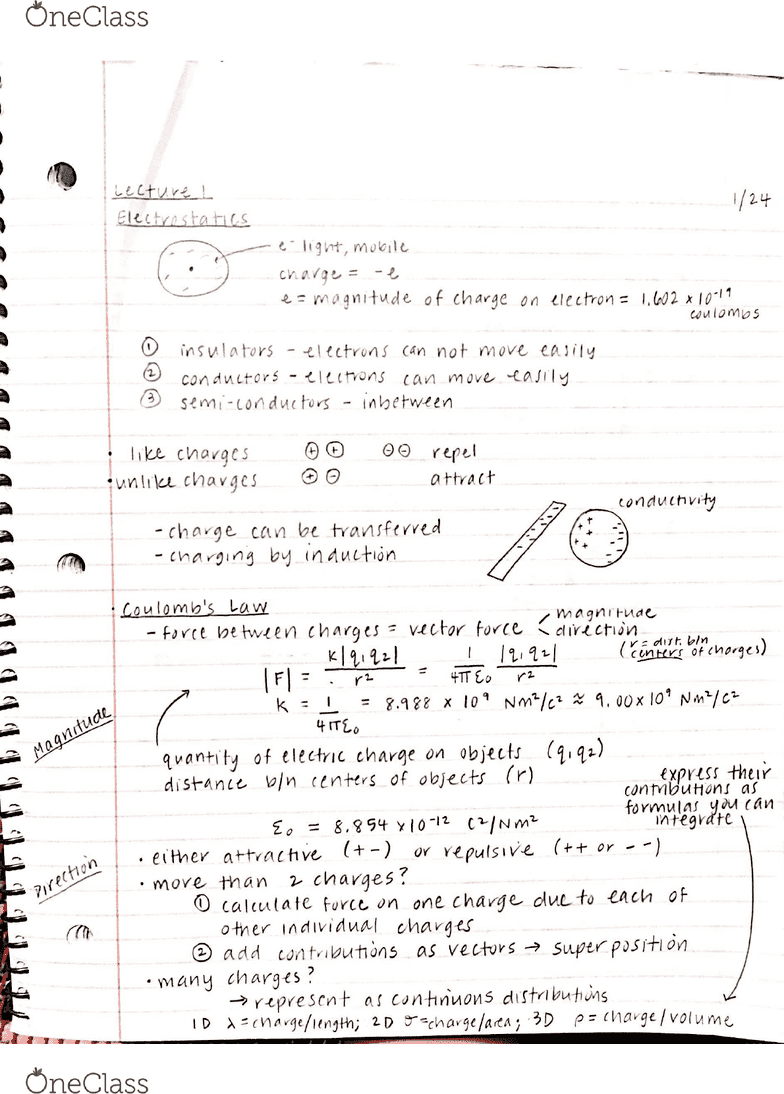 OneClass
Lecture 1
1/24
Electrostatics
e⁻ light, mobile
charge = -e
e = magnitude of charge on electron = 1.602 x 10⁻¹⁹
coulombs
① insulators - electrons can not move easily
② conductors - electrons can move easily
③ semi-conductors - inbetween
• like charges ⊕⊕ ⊖⊖ repel
• unlike charges ⊕⊖ attract
conductivity
- charge can be transferred
- charging by induction
• Coulomb's Law
- force between charges = vector force < magnitude
direction
(r = dist. b/n
centers of charges)
|F| = k|q₁q₂| / r² = 1/4πε₀ |q₁q₂|/r²
k = 1/4πε₀ = 8.988 x 10⁹ Nm²/C² ≈ 9.00x10⁹ Nm²/C²
Magnitude
quantity of electric charge on objects (q₁q₂)
distance b/n centers of objects (r)
express their
contributions as
formulas you can
integrate
ε₀ = 8.854 x10⁻¹² C²/Nm²
Direction
• either attractive (+-) or repulsive (++ or --)
• more than 2 charges?
① calculate force on one charge due to each of
other individual charges
② add contributions as vectors → superposition
• many charges?
→ represent as continuous distributions
1D λ=charge/length; 2D σ=charge/area; 3D ρ=charge/volume
OneClass